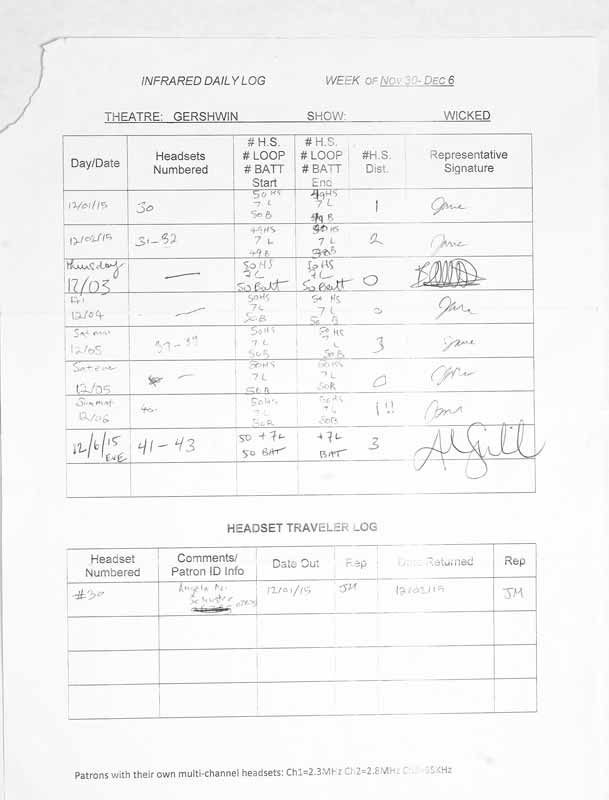 INFRARED DAILY LOG WEEK OF NOV 30- DEC 6
THEATRE: GERSHWIN SHOW: WICKED
Day/Date Headsets Numbered # H.S. # LOOP # BATT Start # H.S. # LOOP # BATT End #H.S. Dist. Representative Signature
12/01/15 30 50 HS 7 L 50 B 49 HS 7 L 49 B 1 Jane
12/02/15 31-32 49 HS 7 L 49 B 7 L 2 Jane
Thursday 12/03 — 50 HS 7 L 50 Batt 50 HS 7 L 50 Batt 0
Fri 12/04 — 50 HS 7 L 50 B 50 HS 7 L 50 B 0 Jane
Satmat 12/05 37-39 50 HS 7 L 50 B 50 HS 7 L 50 B 3 Jane
Sateve 12/05 — 50 HS 7 L 50 B 50 HS 7 L 50 B 0
Sunmat 12/06 40 50 HS 7 L 50 B 50 HS 7 L 50 B 1!!
12/6/15 EVE 41-43 50 +7L 50 BAT +7L BAT 3
HEADSET TRAVELER LOG
Headset Numbered Comments/ Patron ID Info Date Out Rep Date Returned Rep
#30 Angela M. Schuster 12/01/15 JM 12/02/15 JM
Patrons with their own multi-channel headsets: Ch1=2.3MHz Ch2=2.8MHz Ch3=95KHz